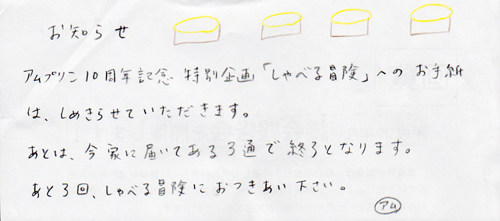 お知らせ
アムプリン10周年記念 特別企画「しゃべる冒険」へのお手紙
は、しめきらせていただきます。
あとは、今家に届いてある3通で終了となります。
あと3回、しゃべる冒険におつきあい下さい。
アム